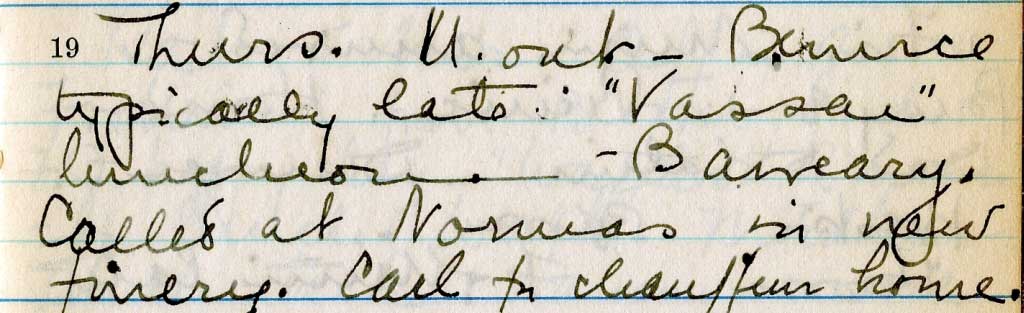 19 Thurs. U. out - Bernice
typically late: "Vassar"
luncheon. - B a weary.
Called at Normas in new
finery. Carl to chauffeur home.